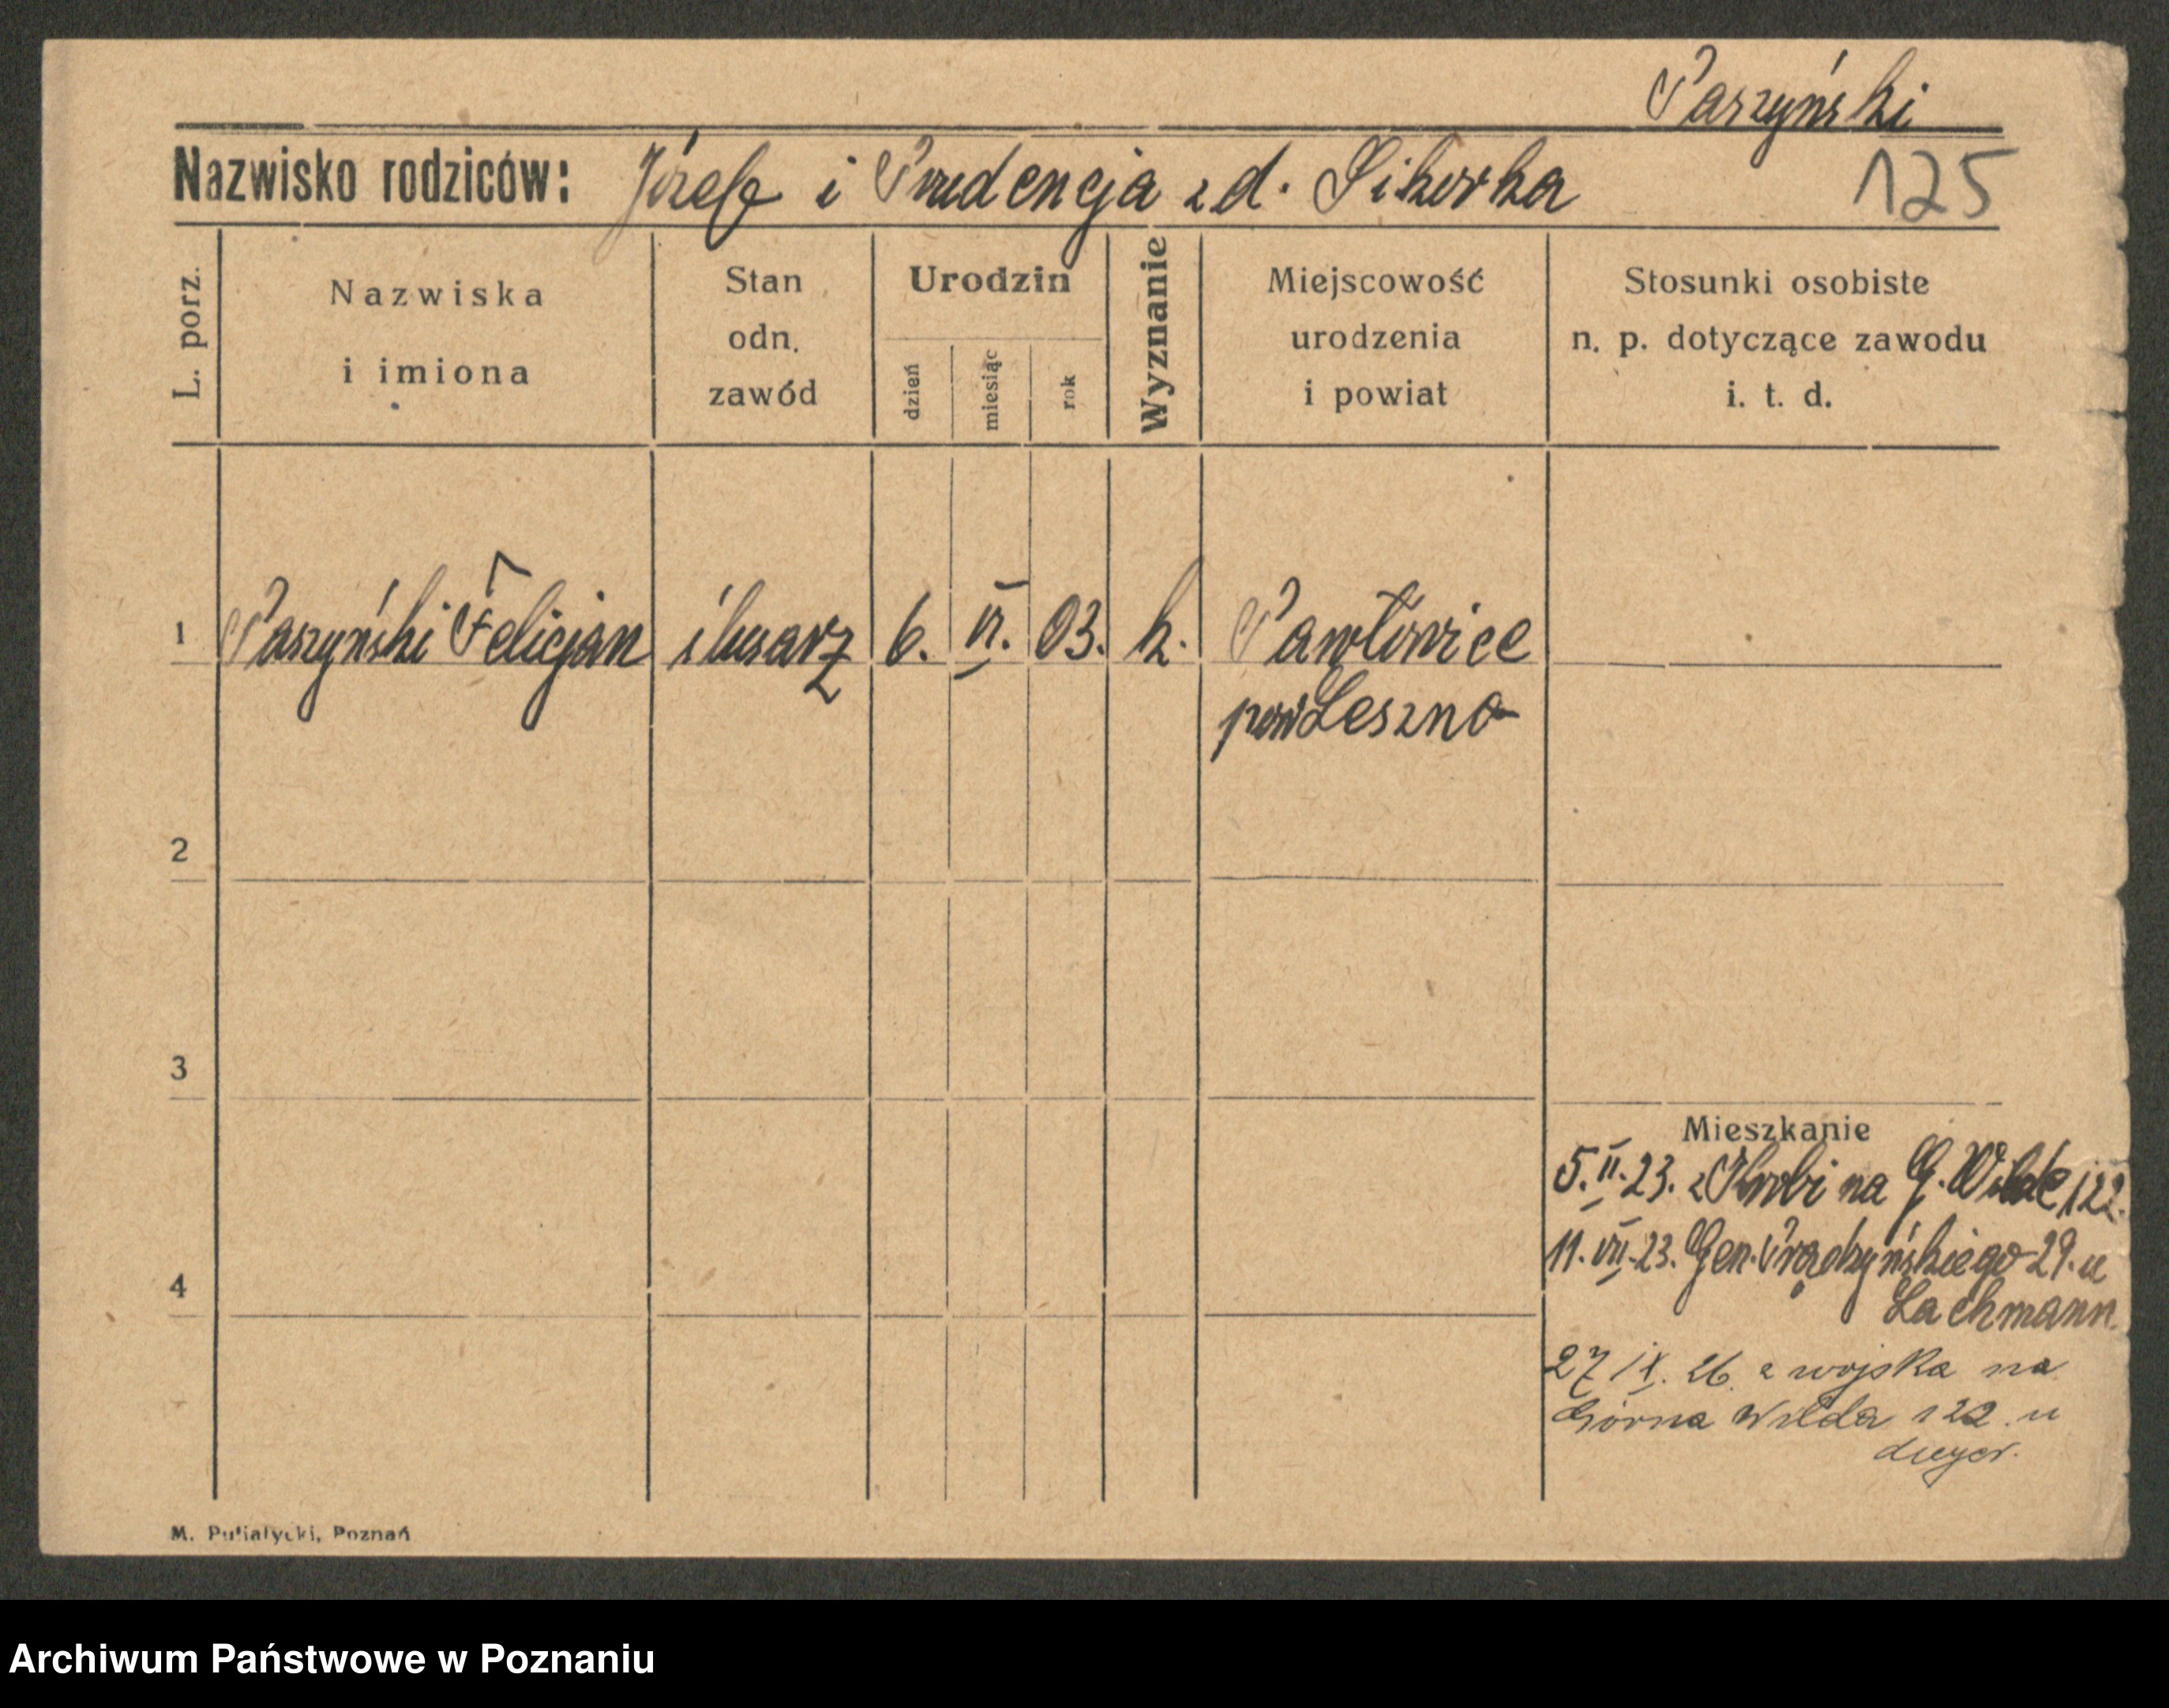 Paszyński
Nazwisko rodziców: Józef i Prudencja z d. Sikorka
125
L. porz.
Nazwiska
i imiona
Stan
odn.
zawód
Urodzin
dzień
miesiąc
rok
Wyznanie
Miejscowość
urodzenia
i powiat
Stosunki osobiste
n. p. dotyczące zawodu
i. t. d.
1 Paszyński Felicjan ślusarz 6. VI. 03. k. Pawłowice
pow Leszno
2
3
4
Mieszkanie
5. II. 23. z Krobi na G. Wilde 122.
11. VII. 23. Gen. Prądzyńskiego 29. u
Lachmann.
27 IX. 26. z wojska na
Górna Wilda 122. u
M. Putiatycki, Poznań
Archiwum Państwowe w Poznaniu